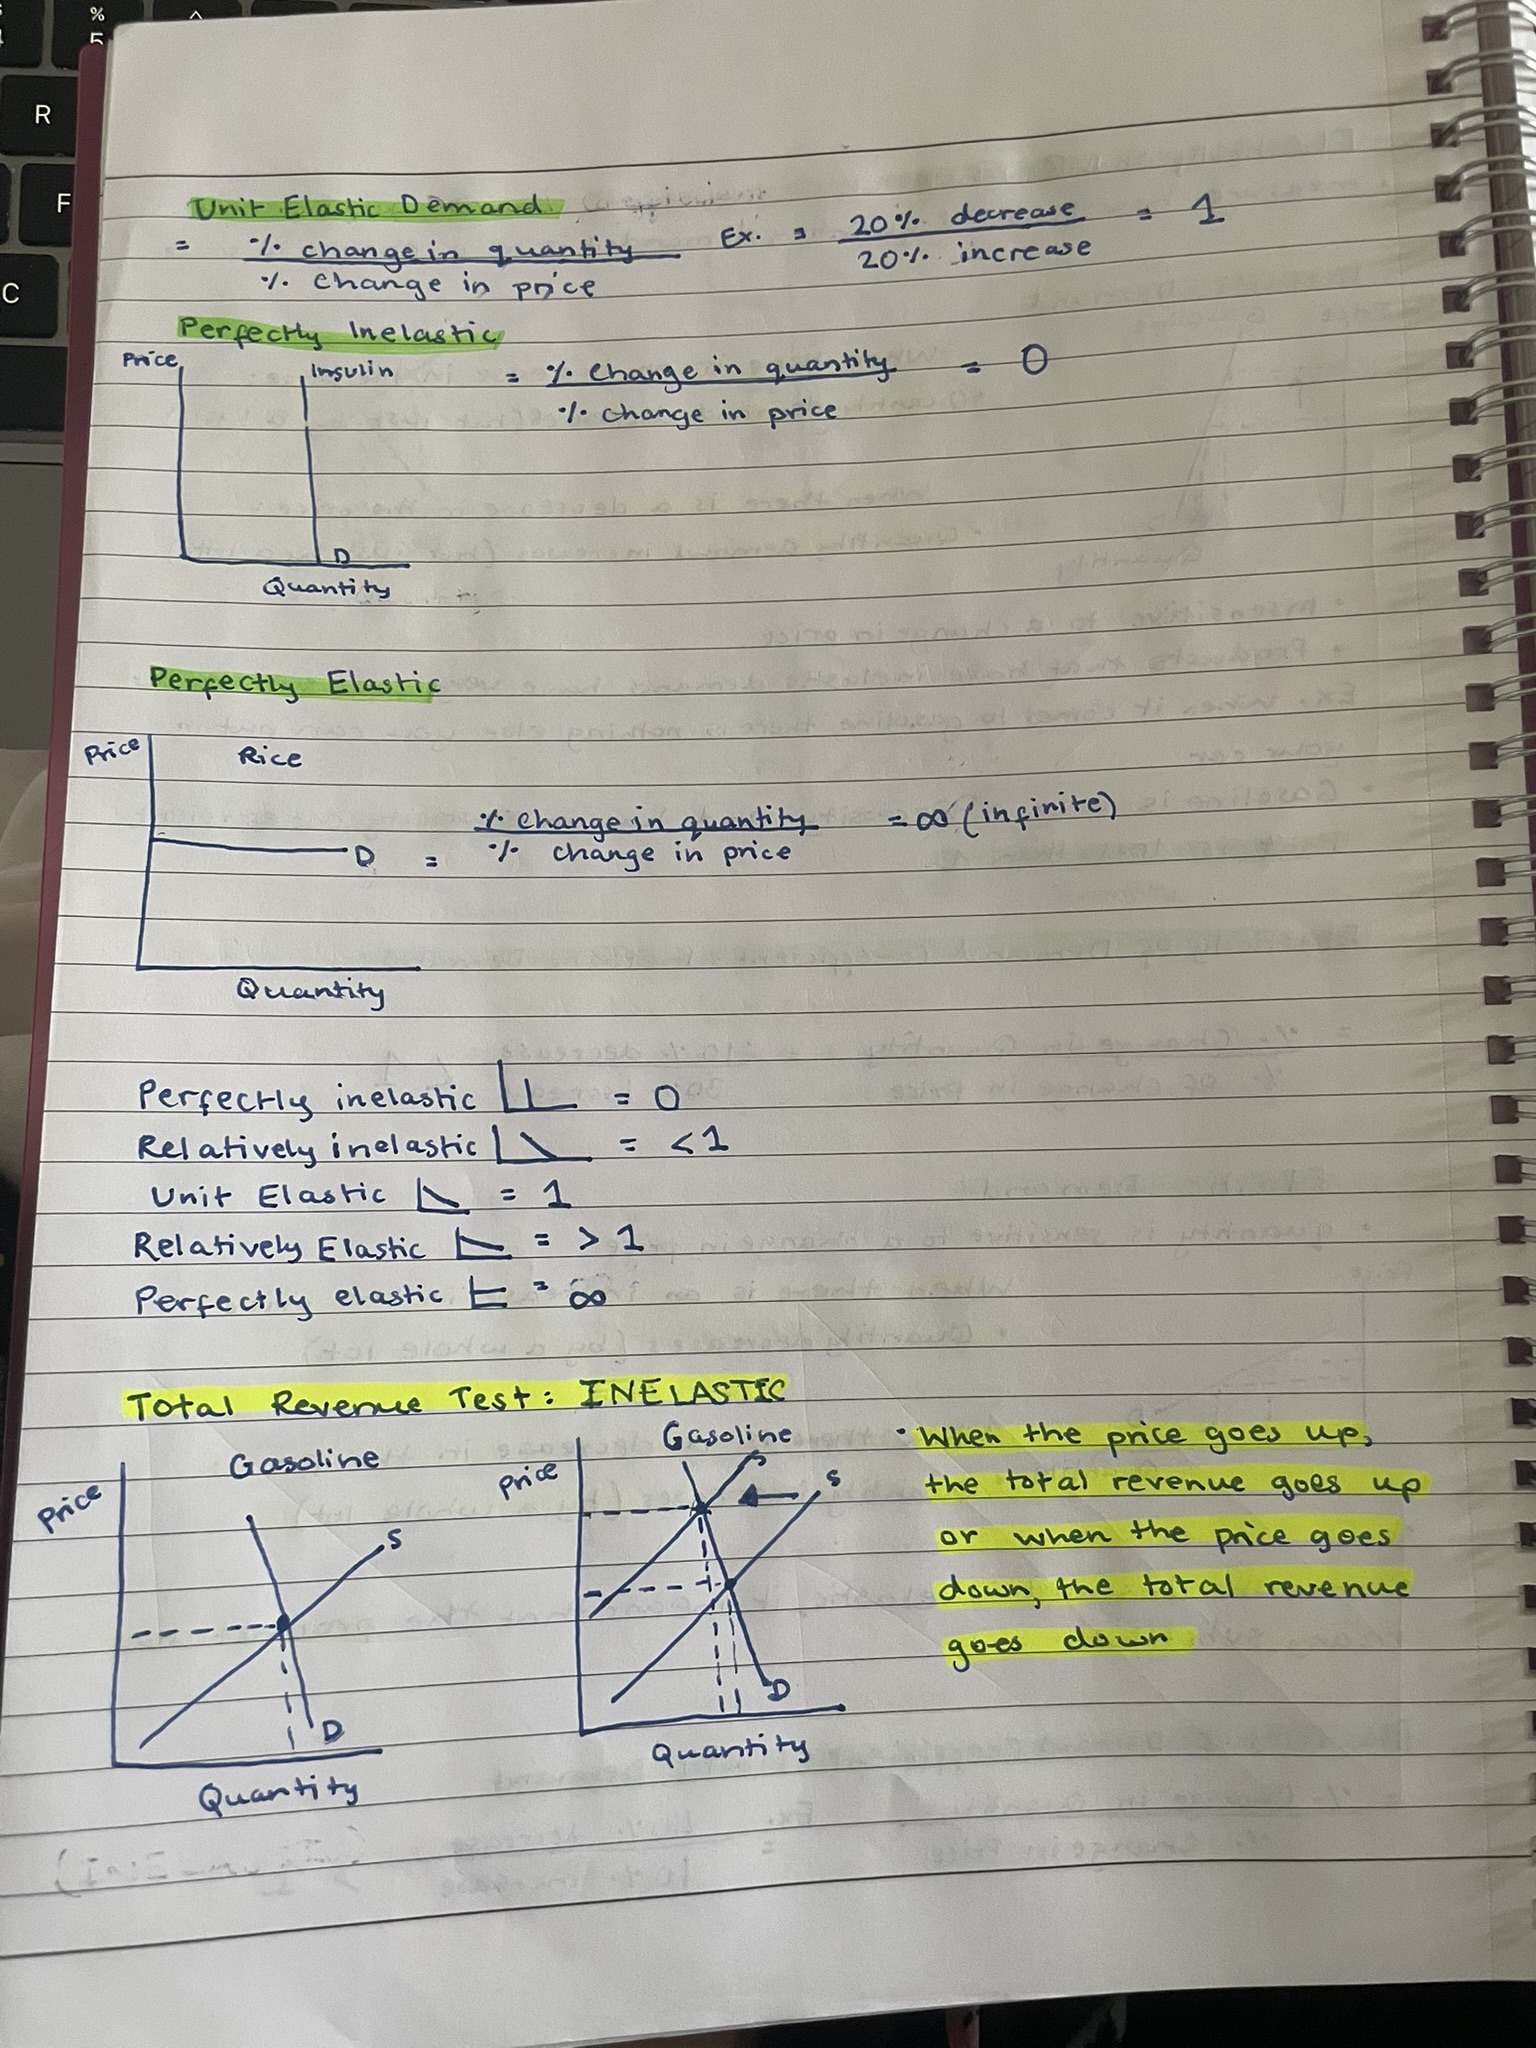 %
5
R
F
C
Unit Elastic Demand
= % change in quantity
% change in price
Ex. = 20% decrease = 1
20% increase
Perfectly Inelastic
Price
Insulin
D
Quantity
= % change in quantity = 0
% change in price
Perfectly Elastic
Price
Rice
D
Quantity
= % change in quantity = ∞ (infinite)
% change in price
Perfectly inelastic = 0
Relatively inelastic = <1
Unit Elastic = 1
Relatively Elastic = >1
Perfectly elastic = ∞
Total Revenue Test: INELASTIC
Gasoline
Price
S
D
Quantity
Gasoline
Price
S
S
D
Quantity
• When the price goes up,
the total revenue goes up
or when the price goes
down, the total revenue
goes down